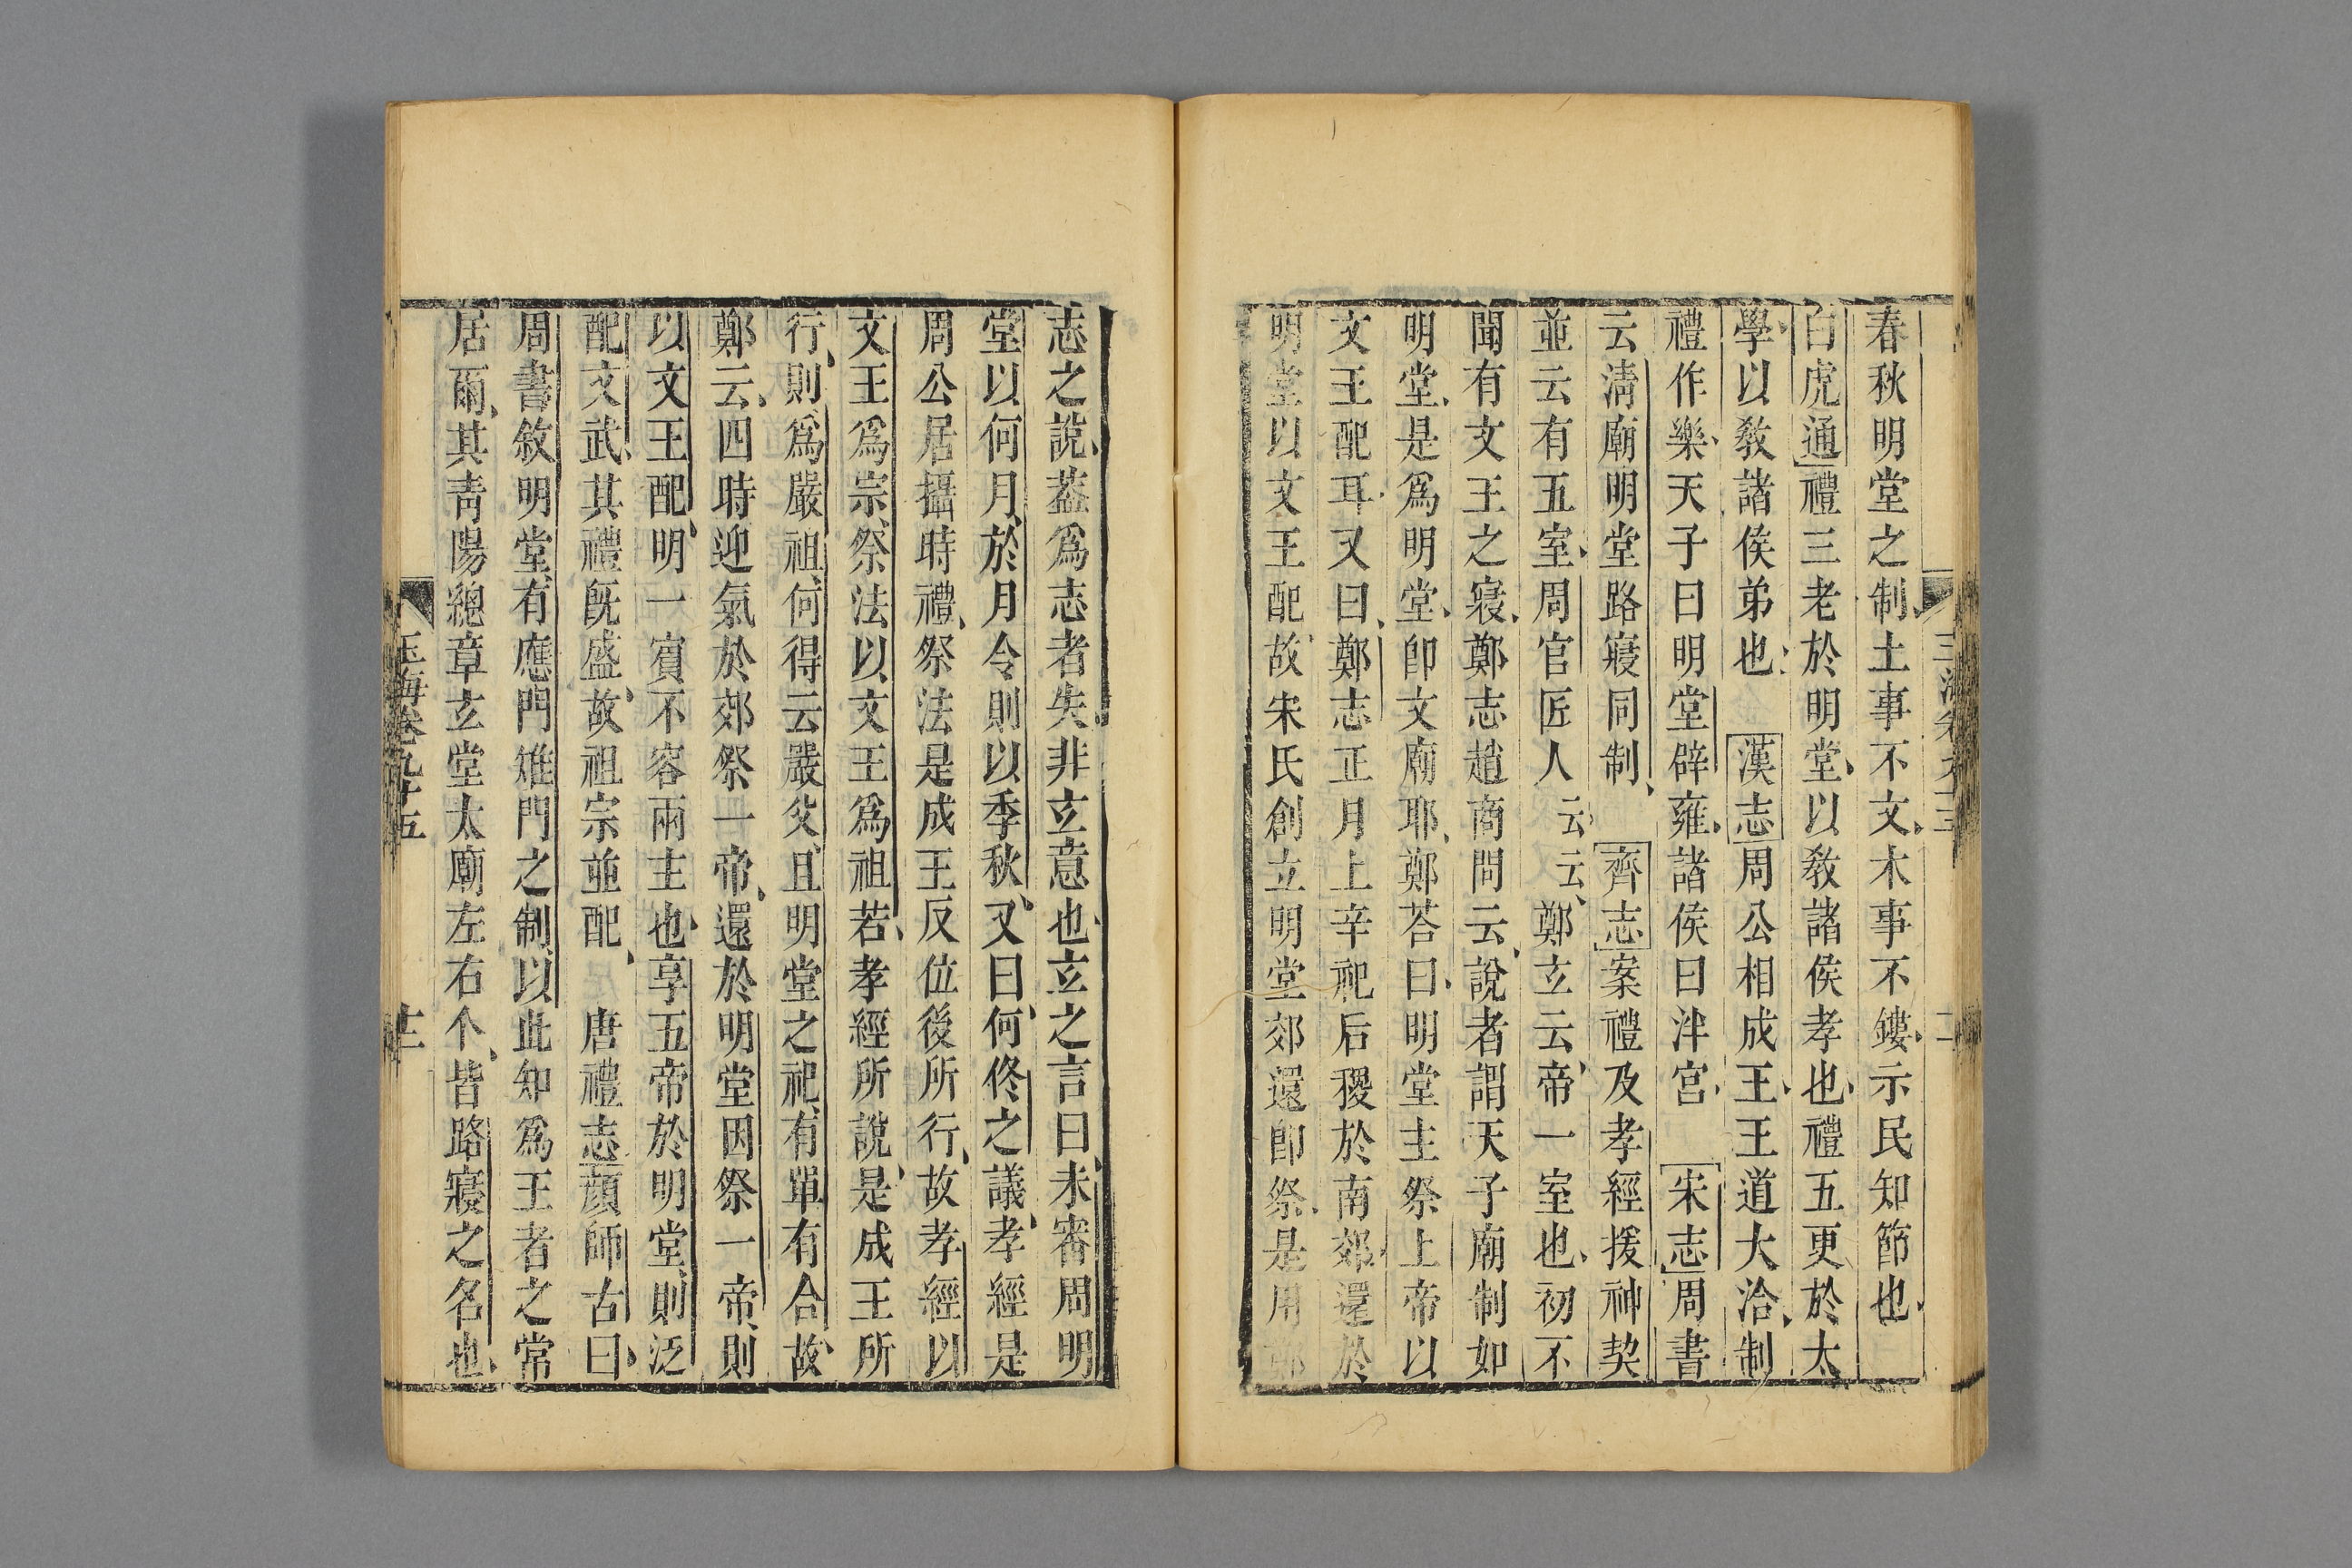 春秋明堂之制土事不文木事不鏤示民知節也
白虎通禮三老於明堂以敎諸侯孝也禮五更於太
學以敎諸侯弟也漢志周公相成王王道大洽制
禮作樂天子曰明堂辟雍諸侯曰泮宮宋志周書
云淸廟明堂路寢同制齊志案禮及孝經援神契
並云有五室周官匠人云云鄭玄云帝一室也初不
聞有文王之寢鄭志趙商問云說者謂天子廟制如
明堂是爲明堂卽文廟耶鄭荅曰明堂主祭上帝以
文王配耳又曰鄭志正月上辛祀后稷於南郊還於
明堂以文王配故宋氏創立明堂郊還卽祭是用鄭
志之說葢爲志者失非玄意也玄之言曰未審周明
堂以何月於月令則以季秋又曰何佟之議孝經是
周公居攝時禮祭法是成王反位後所行故孝經以
文王爲宗祭法以文王爲祖若孝經所說是成王所
行則爲嚴祖何得云嚴父且明堂之祀有單有合故
鄭云四時迎氣於郊祭一帝還於明堂因祭一帝則
以文王配明一賓不容兩主也享五帝於明堂則泛
配文武其禮旣盛故祖宗並配唐禮志顔師古曰
周書敘明堂有應門雉門之制以此知爲王者之常
居爾其靑陽總章玄堂太廟左右个皆路寢之名也
玉海卷九十五 十二